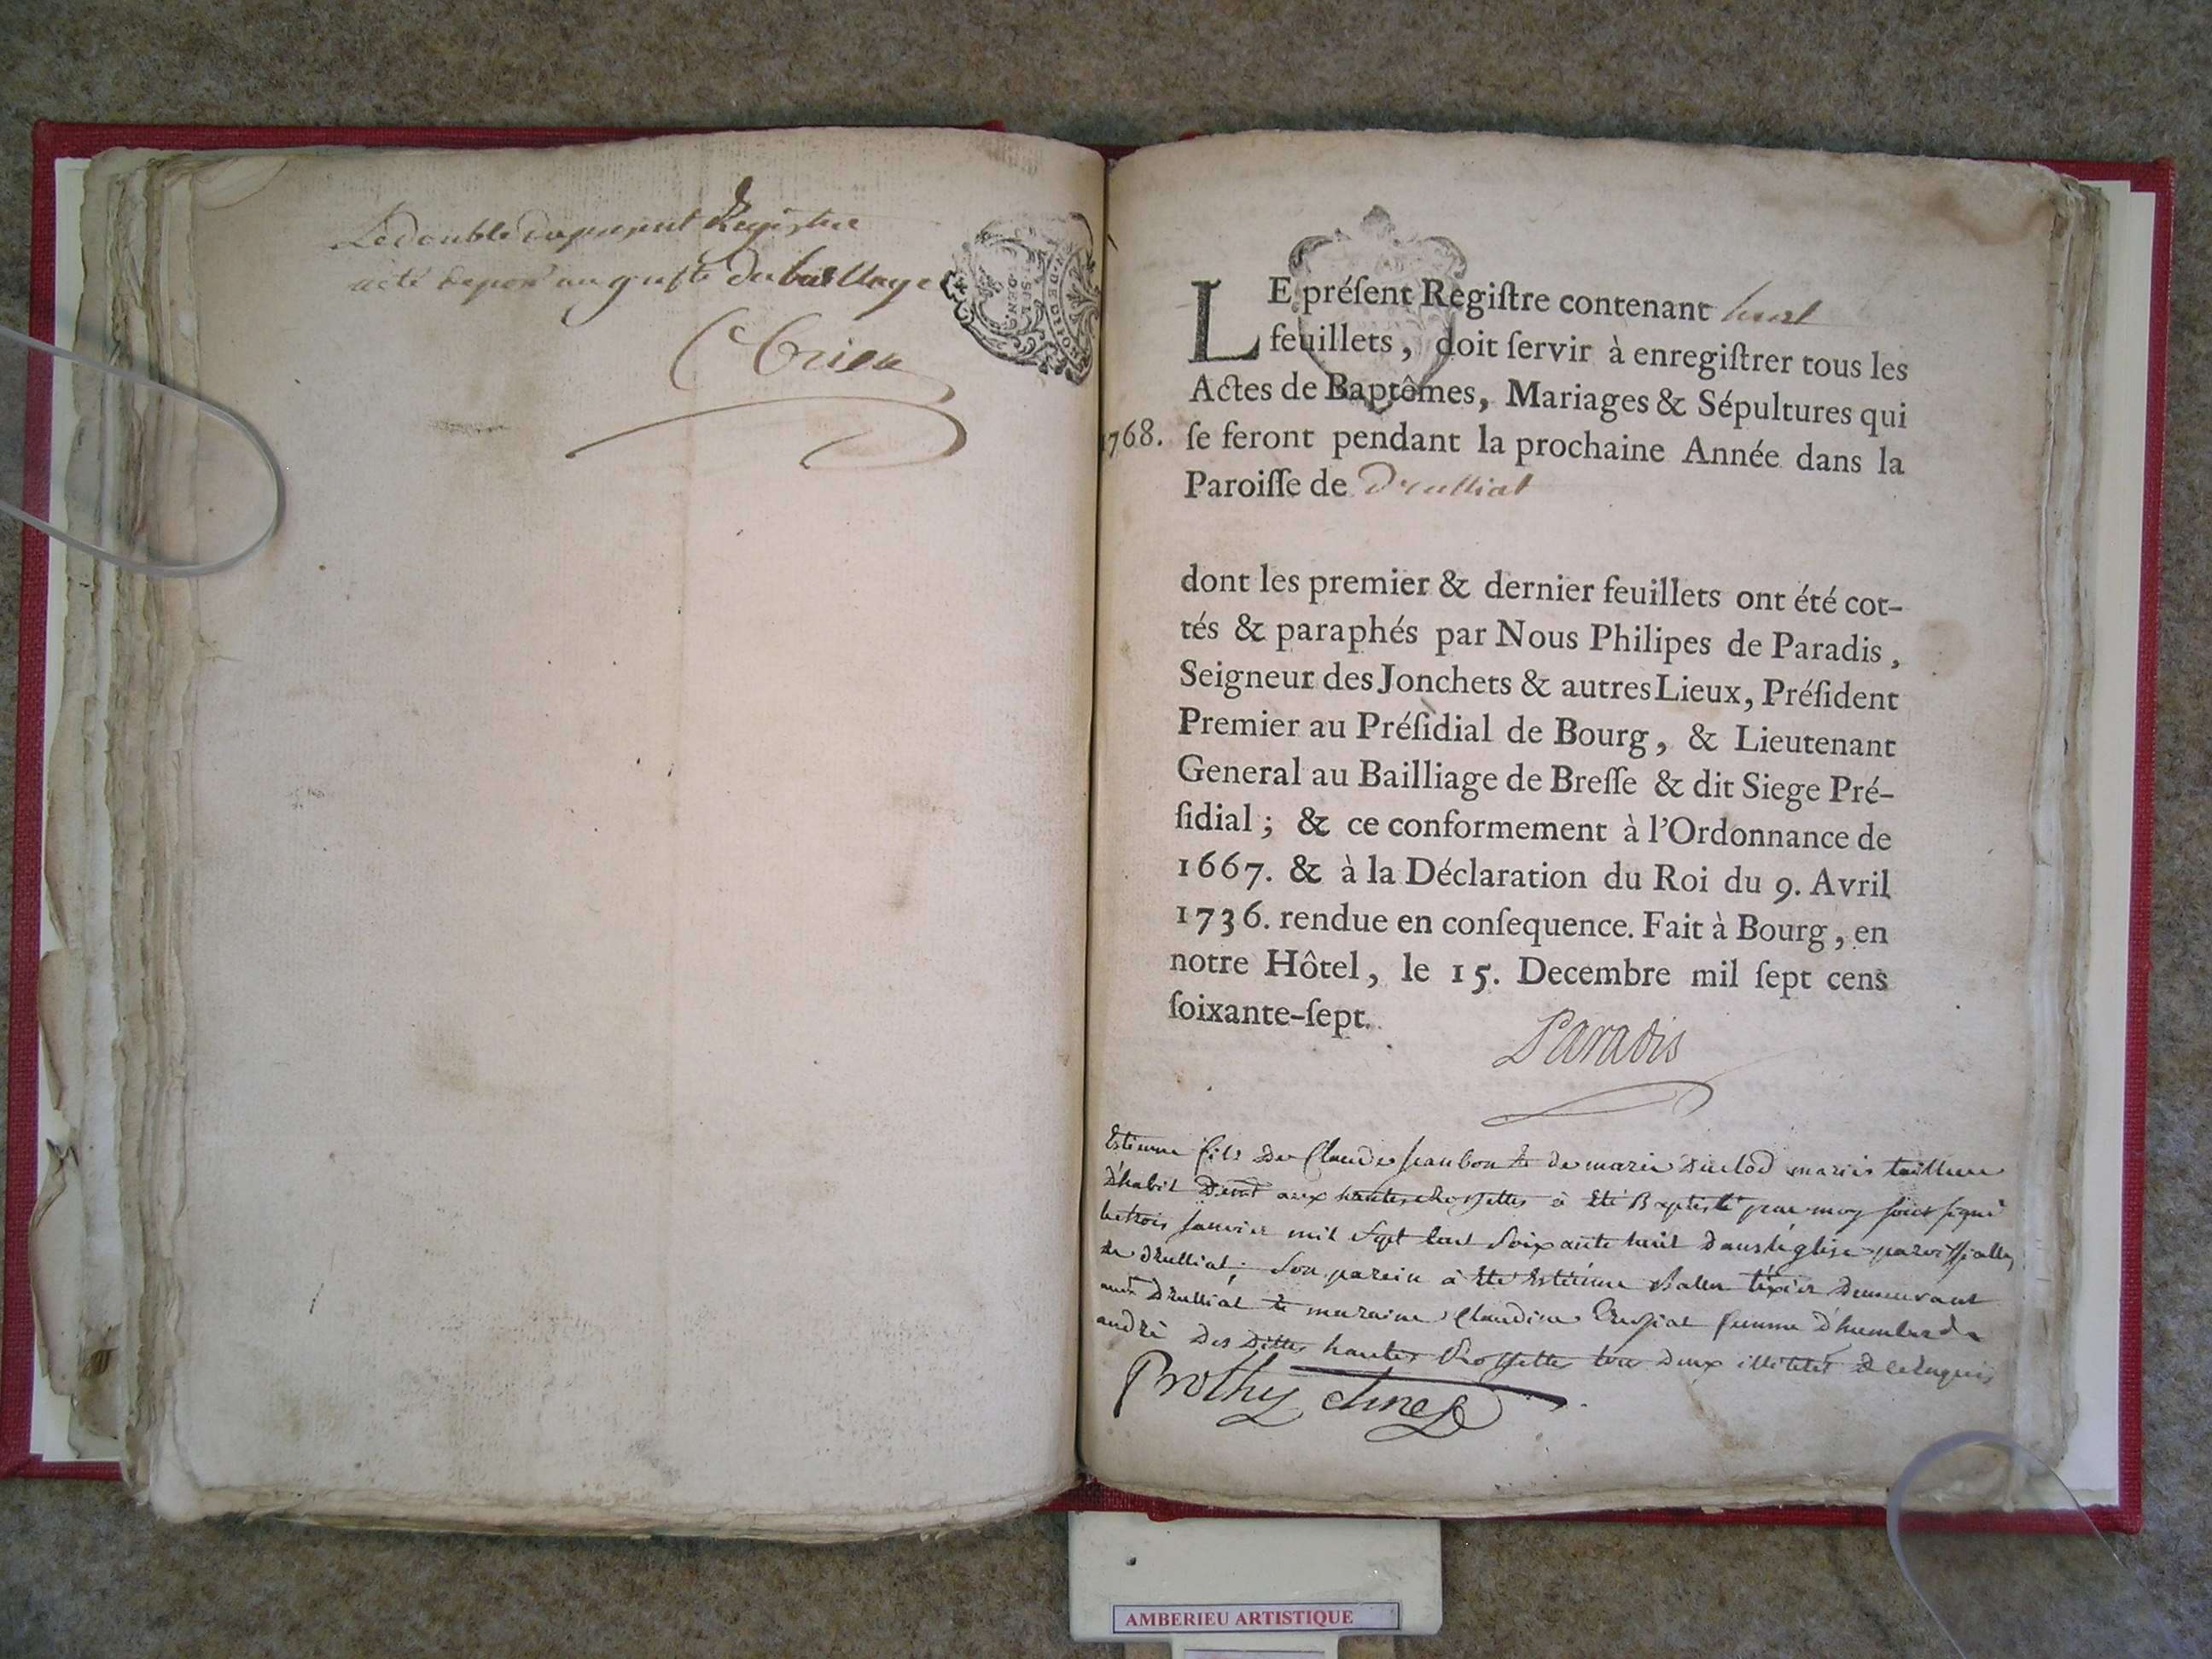 Le double du present Registre
a eté deposé au greffe du bailliage
DE DIJON
L E préſent Regiſtre contenant huit
feuillets, doit ſervir à enregiſtrer tous les
Actes de Baptêmes, Mariages & Sépultures qui
1768. ſe feront pendant la prochaine Année dans la
Paroiſſe de Drulliat
dont les premier & dernier feuillets ont été cot-
tés & paraphés par Nous Philipes de Paradis,
Seigneur des Jonchets & autres Lieux, Préſident
Premier au Préſidial de Bourg, & Lieutenant
General au Bailliage de Breſſe & dit Siege Pré-
ſidial; & ce conformement à l'Ordonnance de
1667. & à la Déclaration du Roi du 9. Avril
1736. rendue en conſequence. Fait à Bourg, en
notre Hôtel, le 15. Decembre mil ſept cens
ſoixante-ſept.
Paradis
Estienne fils de Claude Jeanbon et de marie mariés tailleur
d'habit demt aux hautes Rossettes à Eté Baptisé par moy sous signé
le trois Janvier mil Sept Cent Soixante huit dans l'église paroissialle
de drulliat; Son parein à Eté Estienne texier demeurant
audt drulliat et maraine Claudine femme d'humbert
andré des dittes hautes Rossettes tous deux illitérés de ce Enquis
Prothy Curé
AMBERIEU ARTISTIQUE